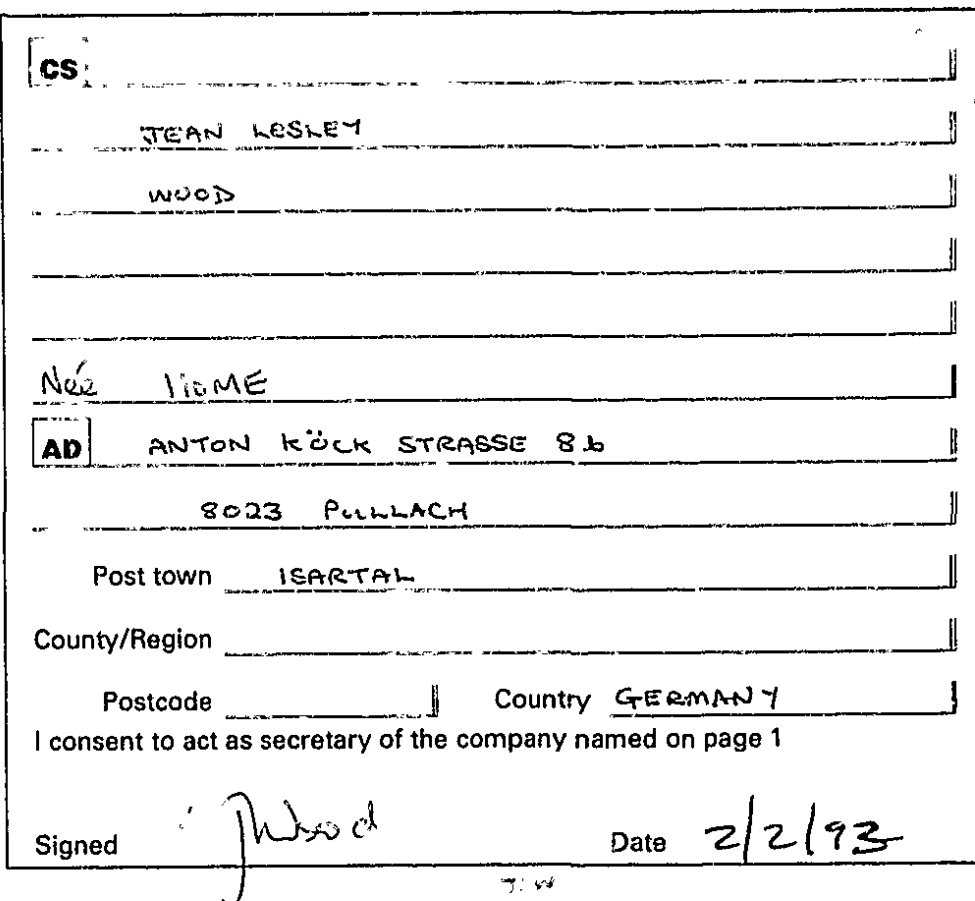 CS
JEAN LESLEY
WOOD
Née HOME
AD ANTON KÖCK STRASSE 8b
8023 PULLACH
Post town ISARTAL
County/Region
Postcode Country GERMANY
I consent to act as secretary of the company named on page 1
Signed JWood Date 2/2/93
J.W